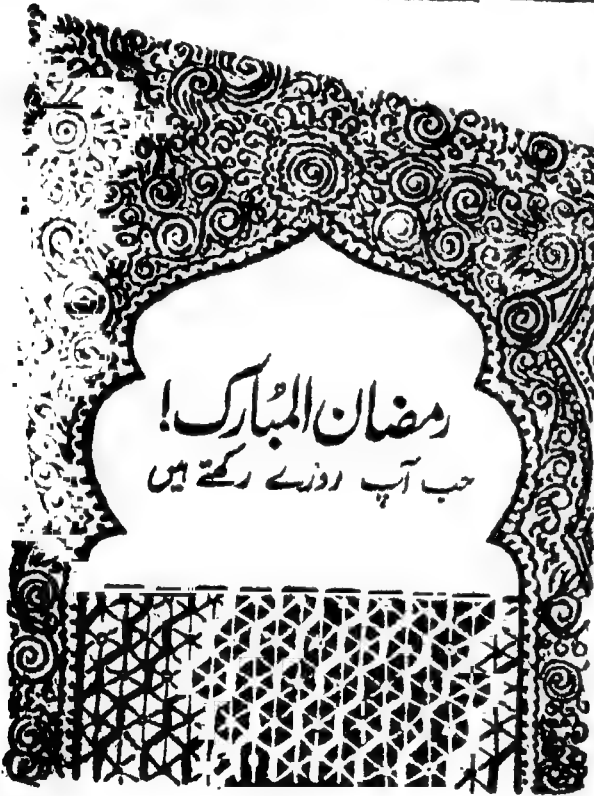 رمضان المُبارک!
جب آپ روزے رکھتے ہیں